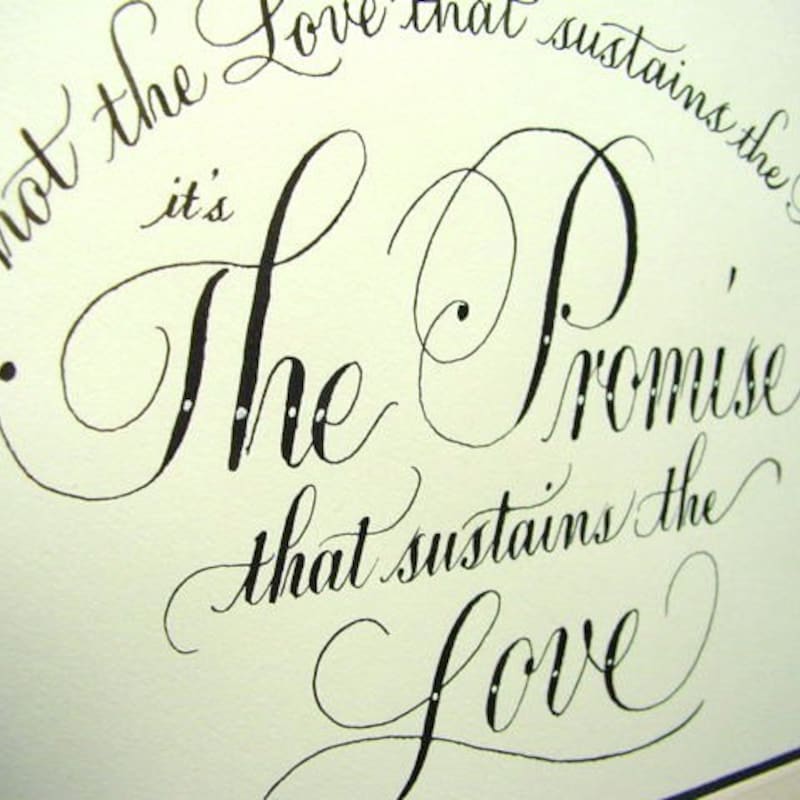 not the Love that sustains the
it's
The Promise
that sustains the
Love